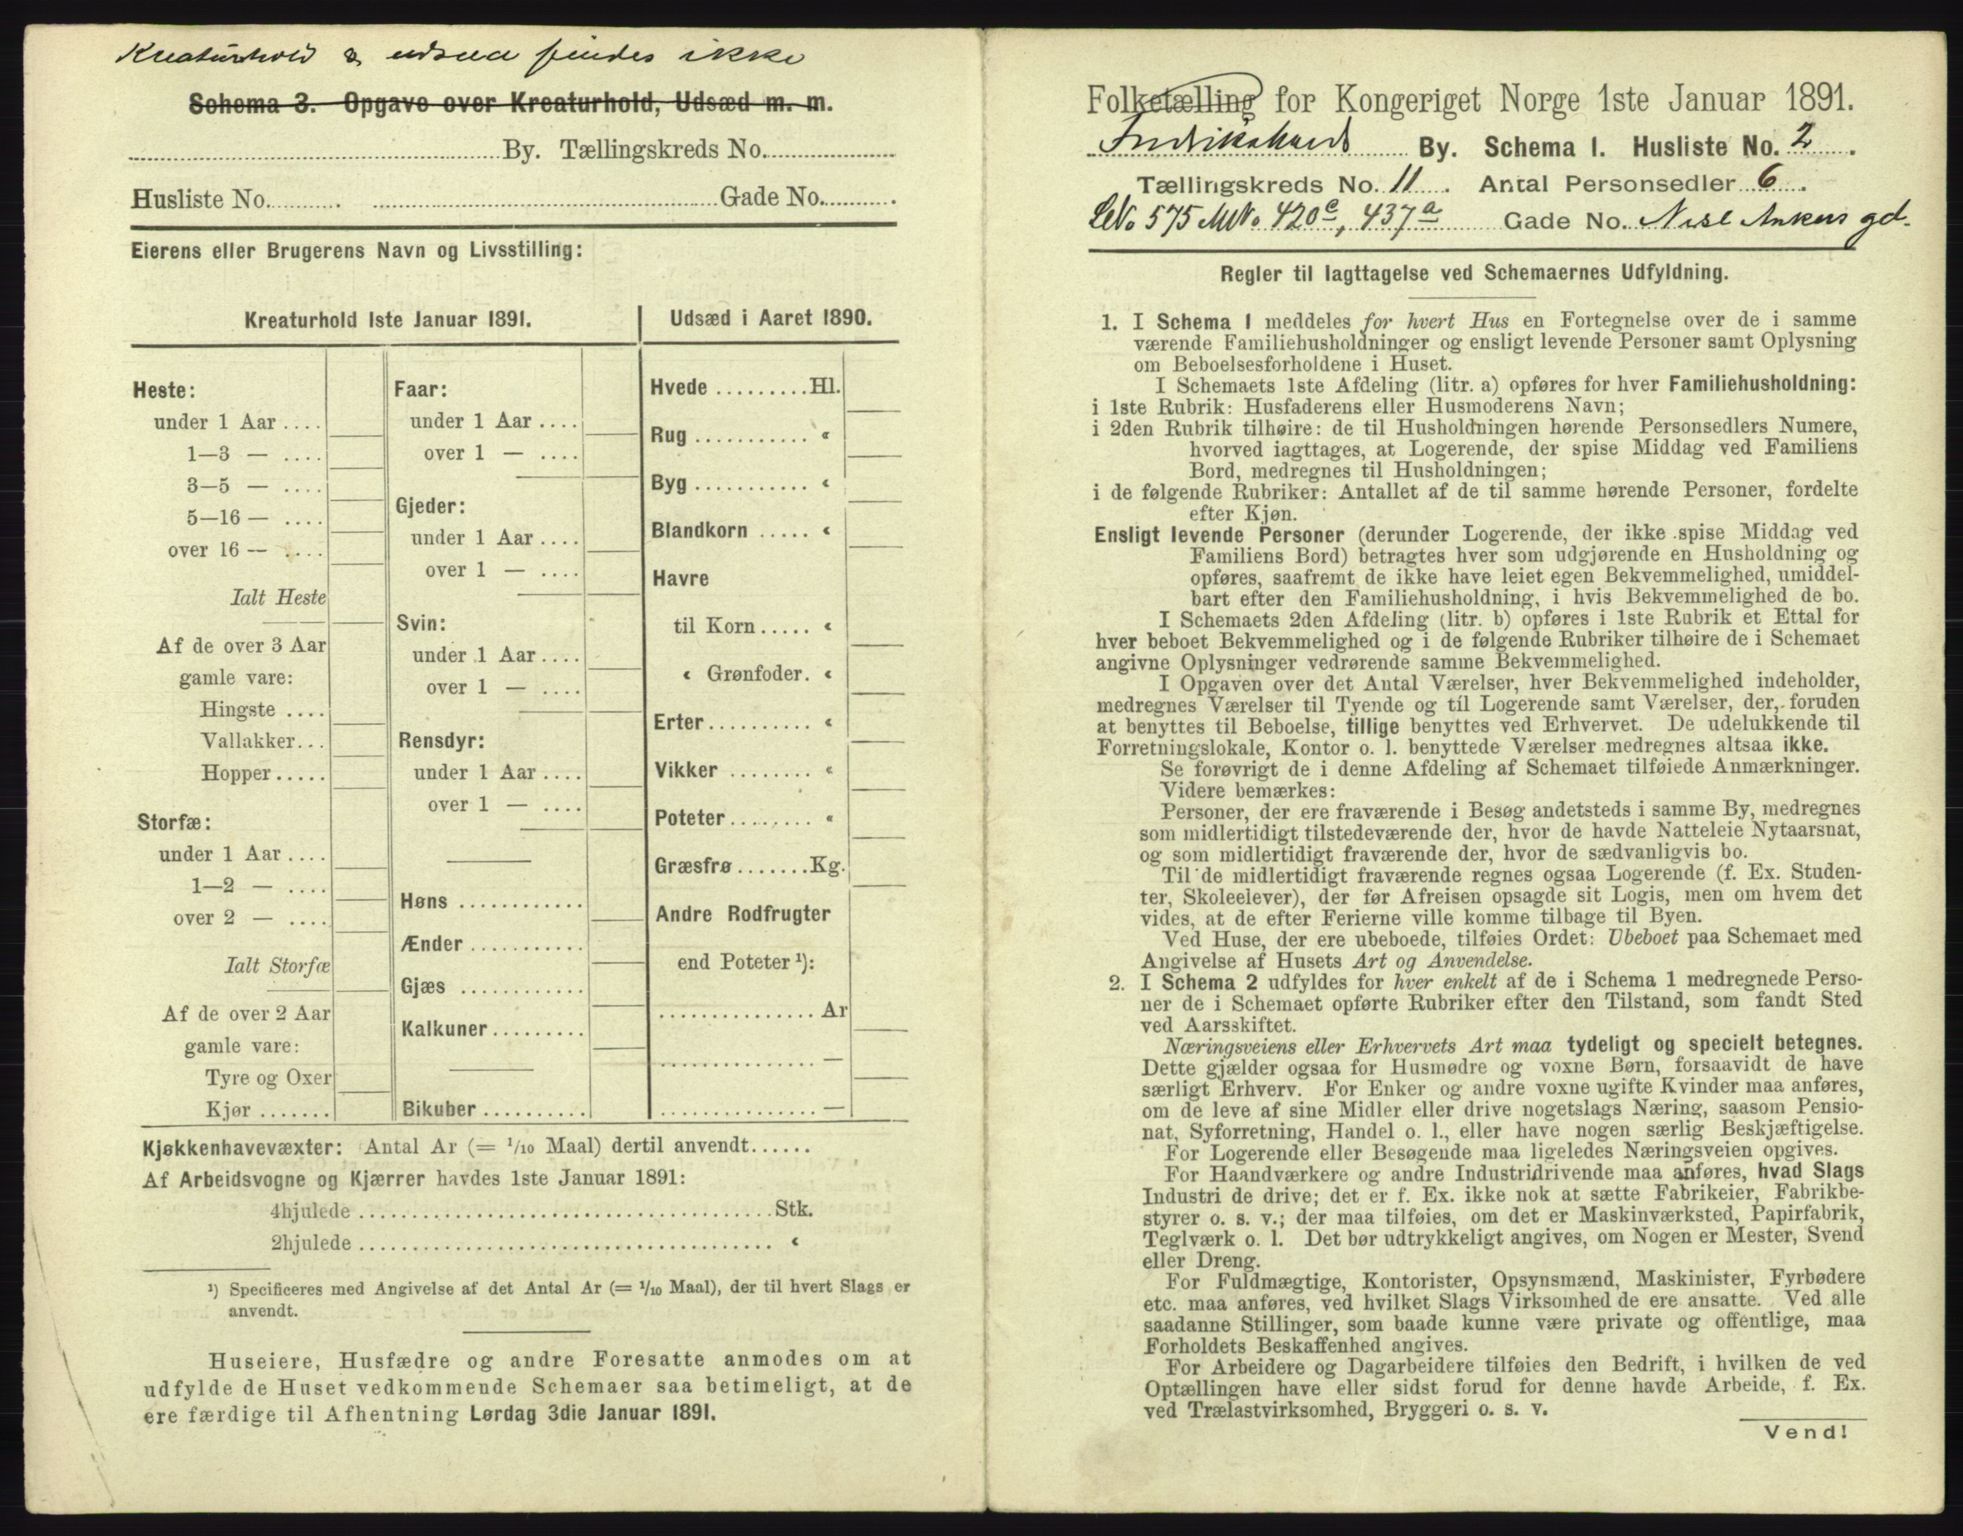 Kreaturhold & udsæd findes ikke
Schema 3. Opgave over Kreaturhold, Udsæd m. m.
By. Tællingskreds No.
Husliste No. Gade No.
Eierens eller Brugerens Navn og Livsstilling:
Kreaturhold 1ste Januar 1891.
Heste:
under 1 Aar
1—3 —
3—5 —
5—16 —
over 16 —
Ialt Heste
Af de over 3 Aar
gamle vare:
Hingste
Vallakker
Hopper
Storfæ:
under 1 Aar
1—2 —
over 2 —
Ialt Storfæ
Af de over 2 Aar
gamle vare:
Tyre og Oxer
Kjør
Faar:
under 1 Aar
over 1 —
Gjeder:
under 1 Aar
over 1 —
Svin:
under 1 Aar
over 1 —
Rensdyr:
under 1 Aar
over 1 —
Høns
Ænder
Gjæs
Kalkuner
Bikuber
Udsæd i Aaret 1890.
Hvede Hl.
Rug «
Byg «
Blandkorn «
Havre
til Korn «
« Grønfoder «
Erter «
Vikker «
Poteter «
Græsfrø Kg.
Andre Rodfrugter
end Poteter ¹):
Ar
—
—
Kjøkkenhavevæxter: Antal Ar (= 1/10 Maal) dertil anvendt
Af Arbeidsvogne og Kjærrer havdes 1ste Januar 1891:
4hjulede Stk.
2hjulede «
¹) Specificeres med Angivelse af det Antal Ar (= 1/10 Maal), der til hvert Slags er
anvendt.
Huseiere, Husfædre og andre Foresatte anmodes om at
udfylde de Huset vedkommende Schemaer saa betimeligt, at de
ere færdige til Afhentning Lørdag 3die Januar 1891.
Folketælling for Kongeriget Norge 1ste Januar 1891.
Fredrikshald By. Schema 1. Husliste No. 2.
Tællingskreds No. 11. Antal Personsedler 6.
575 MNo 420c, 437a Gade No. Niels Ankers gd.
Regler til Iagttagelse ved Schemaernes Udfyldning.
1. I Schema 1 meddeles for hvert Hus en Fortegnelse over de i samme
værende Familiehusholdninger og ensligt levende Personer samt Oplysning
om Beboelsesforholdene i Huset.
I Schemaets 1ste Afdeling (litr. a) opføres for hver Familiehusholdning:
i 1ste Rubrik: Husfaderens eller Husmoderens Navn;
i 2den Rubrik tilhøire: de til Husholdningen hørende Personsedlers Numere,
hvorved iagttages, at Logerende, der spise Middag ved Familiens
Bord, medregnes til Husholdningen;
i de følgende Rubriker: Antallet af de til samme hørende Personer, fordelte
efter Kjøn.
Ensligt levende Personer (derunder Logerende, der ikke spise Middag ved
Familiens Bord) betragtes hver som udgjørende en Husholdning og
opføres, saafremt de ikke have leiet egen Bekvemmelighed, umiddel-
bart efter den Familiehusholdning, i hvis Bekvemmelighed de bo.
I Schemaets 2den Afdeling (litr. b) opføres i 1ste Rubrik et Ettal for
hver beboet Bekvemmelighed og i de følgende Rubriker tilhøire de i Schemaet
angivne Oplysninger vedrørende samme Bekvemmelighed.
I Opgaven over det Antal Værelser, hver Bekvemmelighed indeholder,
medregnes Værelser til Tyende og til Logerende samt Værelser, der, foruden
at benyttes til Beboelse, tillige benyttes ved Erhvervet. De udelukkende til
Forretningslokale, Kontor o. l. benyttede Værelser medregnes altsaa ikke.
Se forøvrigt de i denne Afdeling af Schemaet tilføiede Anmærkninger.
Videre bemærkes:
Personer, der ere fraværende i Besøg andetsteds i samme By, medregnes
som midlertidigt tilstedeværende der, hvor de havde Natteleie Nytaarsnat,
og som midlertidigt fraværende der, hvor de sædvanligvis bo.
Til de midlertidigt fraværende regnes ogsaa Logerende (f. Ex. Studen-
ter, Skoleelever), der før Afreisen opsagde sit Logis, men om hvem det
vides, at de efter Ferierne ville komme tilbage til Byen.
Ved Huse, der ere ubeboede, tilføies Ordet: Ubeboet paa Schemaet med
Angivelse af Husets Art og Anvendelse.
2. I Schema 2 udfyldes for hver enkelt af de i Schema 1 medregnede Perso-
ner de i Schemaet opførte Rubriker efter den Tilstand, som fandt Sted
ved Aarsskiftet.
Næringsveiens eller Erhvervets Art maa tydeligt og specielt betegnes.
Dette gjælder ogsaa for Husmødre og voxne Børn, forsaavidt de have
særligt Erhverv. For Enker og andre voxne ugifte Kvinder maa anføres,
om de leve af sine Midler eller drive nogetslags Næring, saasom Pensio-
nat, Syforretning, Handel o. l., eller have nogen særlig Beskjæftigelse.
For Logerende eller Besøgende maa ligeledes Næringsveien opgives.
For Haandværkere og andre Industridrivende maa anføres, hvad Slags
Industri de drive; det er f. Ex. ikke nok at sætte Fabrikeier, Fabrikbe-
styrer o. s. v.; der maa tilføies, om det er Maskinværksted, Papirfabrik,
Teglværk o. l. Det bør udtrykkeligt angives, om Nogen er Mester, Svend
eller Dreng.
For Fuldmægtige, Kontorister, Opsynsmænd, Maskinister, Fyrbødere
etc. maa anføres, ved hvilket Slags Virksomhed de ere ansatte. Ved alle
saadanne Stillinger, som baade kunne være private og offentlige, maa
Forholdets Beskaffenhed angives.
For Arbeidere og Dagarbeidere tilføies den Bedrift, i hvilken de ved
Optællingen have eller sidst forud for denne havde Arbeide, f. Ex.
ved Trælastvirksomhed, Bryggeri o. s. v.
Vend!